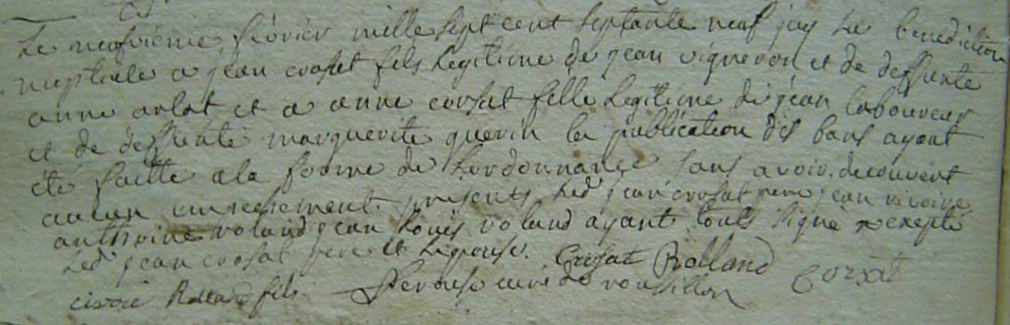 Le neufvieme février mille sept cent septante neuf jay la benediction
nuptiale a jean crosat fils Legitime de jean vigneron et de deffunte
anne arlot et a anne corsat fille Legitime de jean laboureur
et de deffunte marguerite guerin la publication des bans ayant
été faitte a la forme de Lordonnance sans avoir decouvert
aucun empechement presents Led jean crosat pere jean
anthoine roland jean Louis roland ayant touts signé exepté
Led jean crosat pere et Lepouse. Crosat Rolland Corsat
Rolland fils curé de rousillon